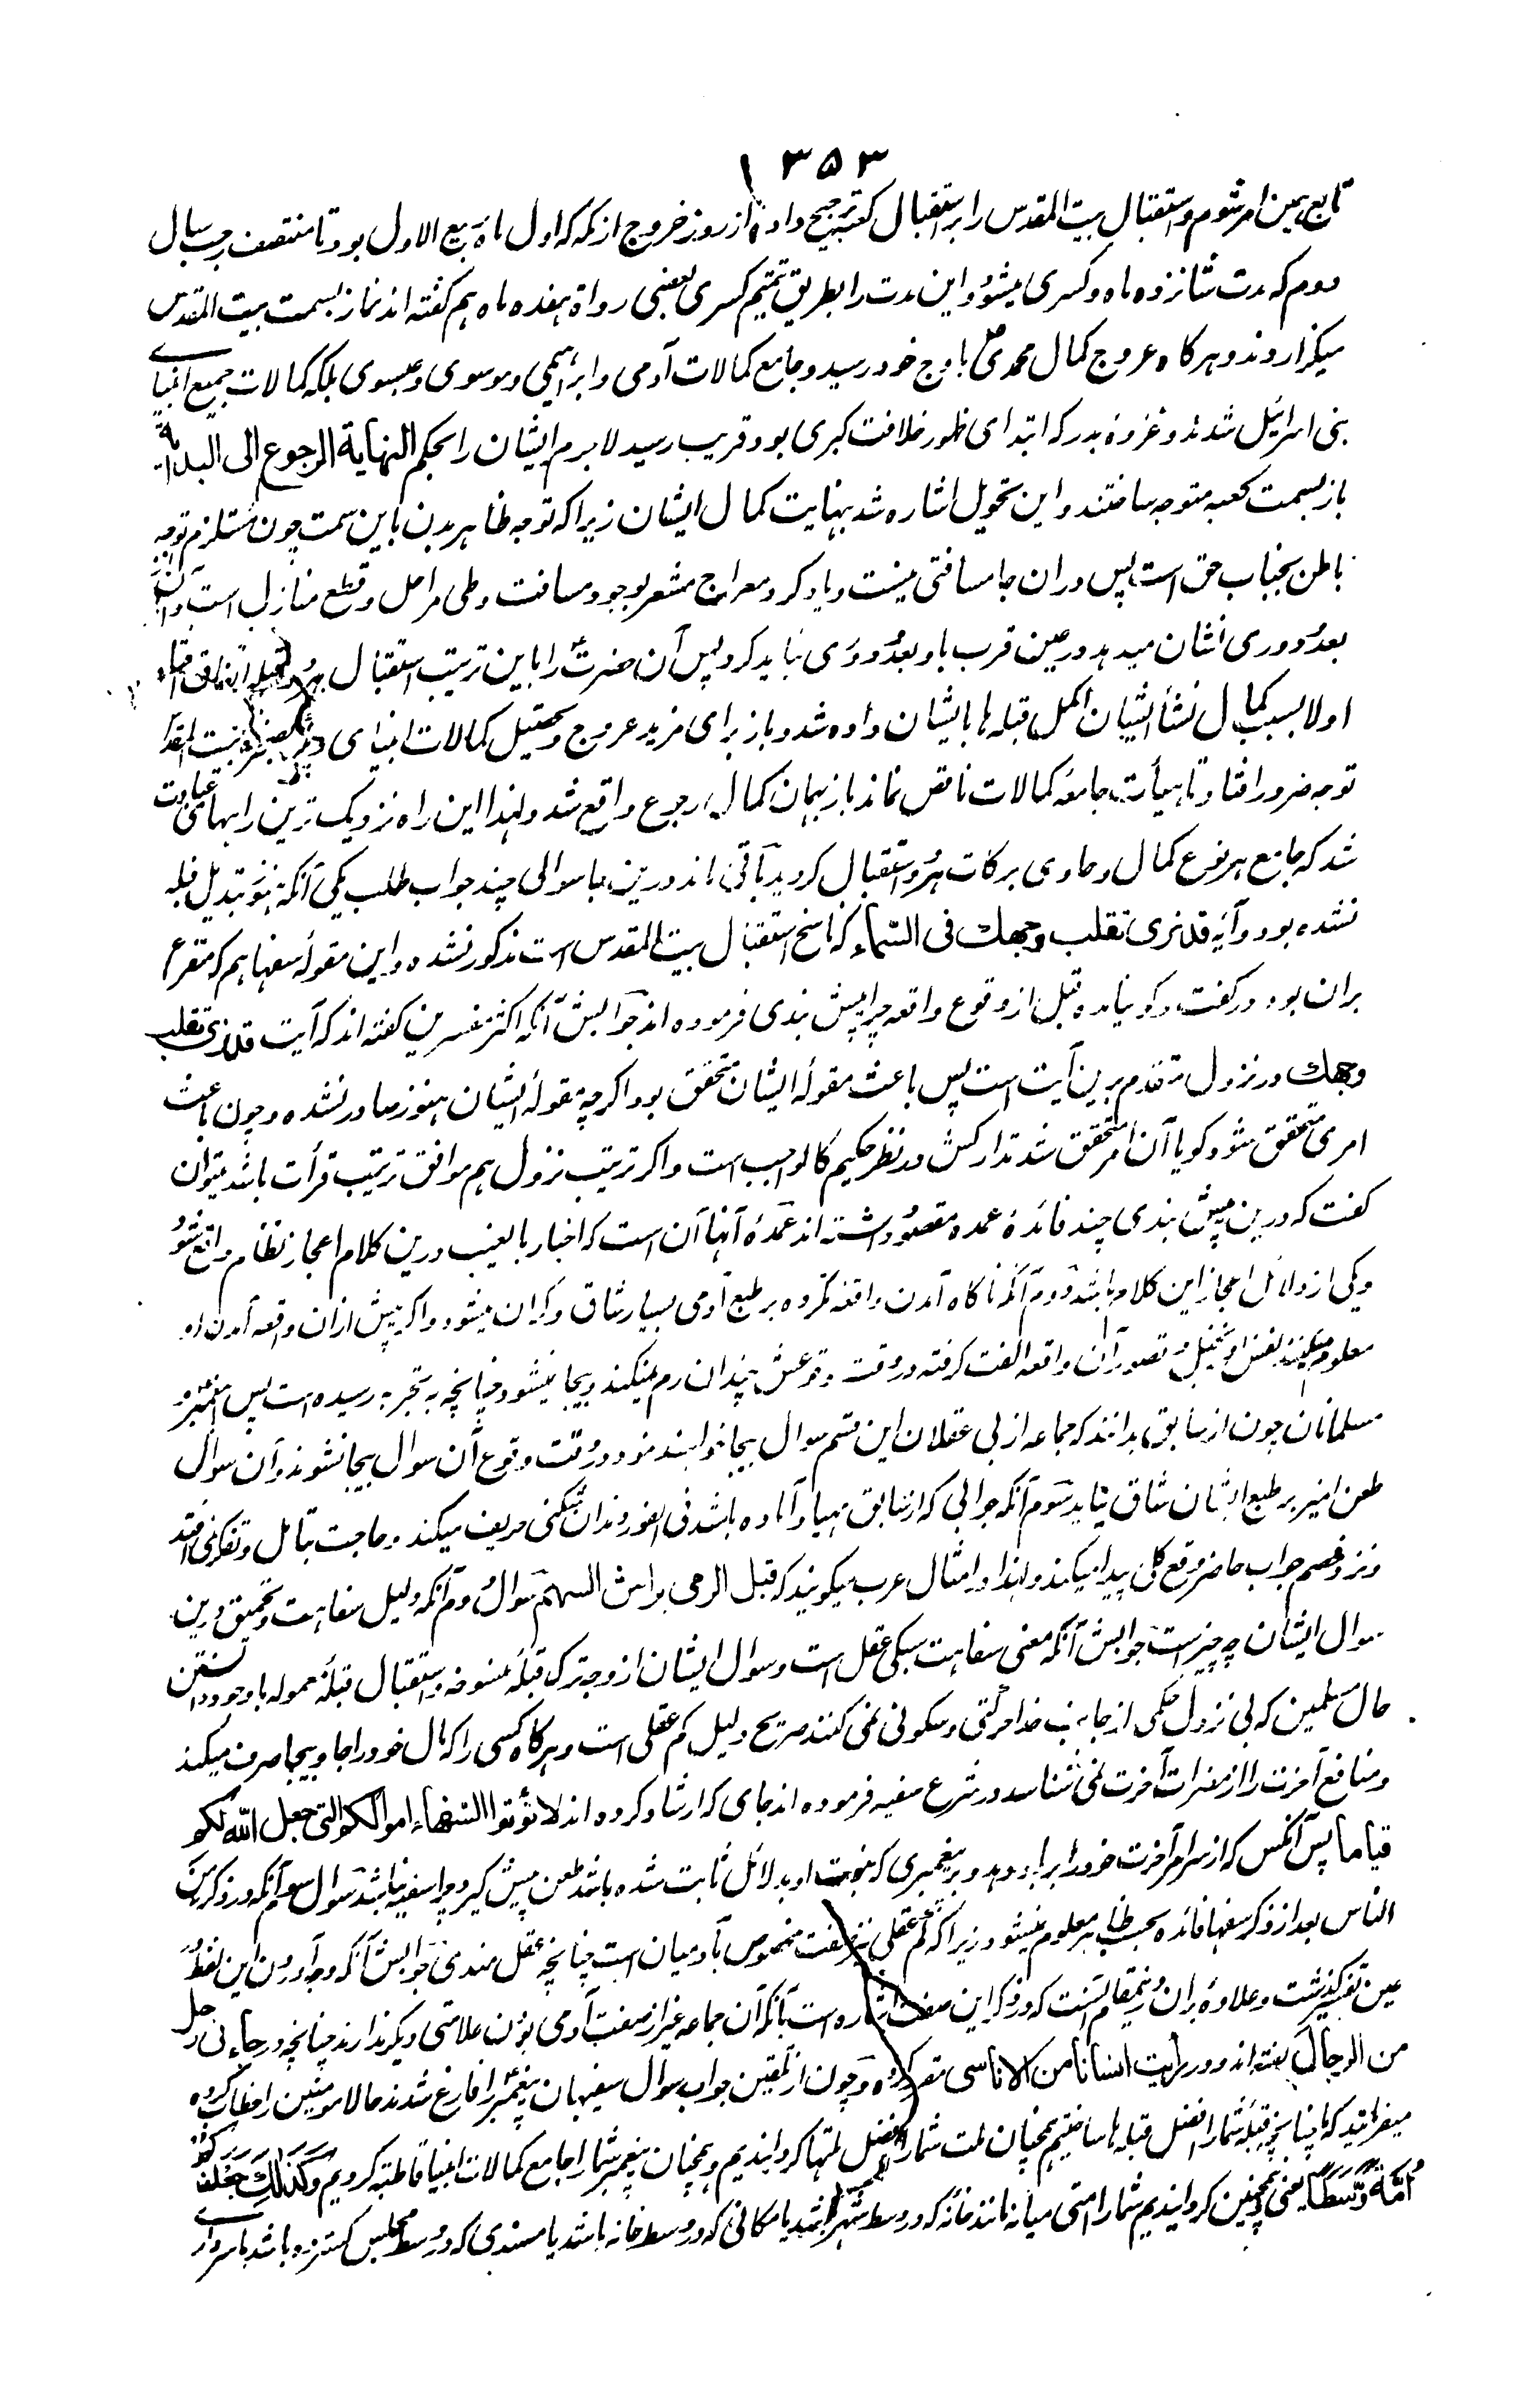 ۱۳۵۳
تابع همین امر شوم و استقبال بیت المقدس را بر استقبال کعبه ترجیح داده از روز خروج از مکه که اول ماه ربیع الاول بود تا منتصف رجب سال
دوم که مدت شانزده ماه و کسری میشود و این مدت را بطریق تتمیم کسری بعضی رواة هفده ماه هم گفته اند نماز بسمت بیت المقدس
میگزاروند و هرگاه عروج کمال محمدی باوج خود رسید و جامع کمالات آدمی و ابراهیمی و موسوی و عیسوی بلکه کمالات جمیع انبیای
بنی اسرائیل شدند و غزوهٔ بدر که ابتدای ظهور خلافت کبری بود قریب رسید لاجرم ایشان را بحکم النهایة الرجوع الی البدایة
باز بسمت کعبه متوجه ساختند و این تحویل اشاره شد بنهایت کمال ایشان زیرا که توجه ظاهر بدن باین سمت چون مستلزم توجه
باطن بجناب حق است پس دران جا مسافتی نیست و یاد کرد معراج مشعر بوجود مسافت و طی مراحل و قطع منازل است و ازان
بعد و دوری نشان میدهد و در عین قرب یاد بعد و دوری نباید کرد پس آن حضرت را باین ترتیب استقبال هر دو قبله اتفاق افتاد
اولا بسبب کمال نشأ ایشان اکمل قبله ها بایشان داده شد و باز برای مزید عروج و تحصیل کمالات انبیای دیگر بیت المقدس
توجه ضرور افتاد تا هیأت جامعه کمالات ناقص نماند باز بهمان کمال رجوع واقع شد و لهذا این راه نزدیک ترین راههای عبادت
شد که جامع هر نوع کمال و حاوی برکات هر دو استقبال کردید باقی ماند درین جا سوالی چند جواب طلب یکی آنکه هنوز تبدیل قبله
نشده بود و آیه قد نری تقلب وجهك فی السّماء که ناسخ استقبال بیت المقدس است مذکور نشده و این مقولهٔ سفها هم که متفرع
بران بود در گفت و گو نیامده قبل از وقوع واقعه چرا پیش بندی فرموده اند جوابش آنکه اکثر مفسرین گفته اند که آیت قد نری تقلب
وجهك در نزول متقدم برین آیت است پس باعث مقولهٔ ایشان متحقق بود اگرچه مقولهٔ ایشان هنوز صادر نشده و چون باعث
امری متحقق شود گویا آن امر متحقق شد تدارکش در نظر حکیم کالواجب است و اگر ترتیب نزول هم موافق ترتیب قرأت باشد میتوان
گفت که درین پیش بندی چند فائدهٔ عمده مقصود داشته اند عمدهٔ آنها آن است که اخبار بالغیب درین کلام اعجاز نظام واقع شود
و یکی از دلائل اعجاز این کلام باشد دوم آنکه ناگاه آمدن واقعه مکروه بر طبع آدمی بسیار شاق و گران میشود و اگر پیش ازان واقعه آمدن او
معلوم میکنند نفس او بتخیل و تصور آن واقعه الفت گرفته در وقت وقوعش چندان رم نمیکند و بیجا نمیشود چنانچه به تجربه رسیده است پس پیغمبر و
مسلمانان چون از سابق بدانند که جماعه از بی عقلان این قسم سوال بیجا خواهند نمود در وقت وقوع آن سوال بیجا نشوند و آن سوال
طعن آمیز بر طبع ایشان شاق نیاید سوم آنکه جوابی که از سابق مهیا و آماده باشد فی الفور دندان شکنی حریف میکند و حاجت بتأمل و تفکر نمی افتد
و نزد خصم جواب حاضر موقع کلی پیدا میکند و لهذا در امثال عرب میگویند که قبل الرمی یراش السهم سوال دوم آنکه دلیل سفاهت و تحمیق درین
سوال ایشان چه چیز است جوابش آنکه معنی سفاهت سبکی عقل است و سوال ایشان از وجه ترک قبله منسوخه و استقبال قبلهٔ معموله با وجود دانستن
حال مسلمین که بی نزول حکمی از جانب خدا حرکتی و سکونی نمی کنند صریح دلیل کم عقلی است و هرگاه کسی را که مال خود را جا و بیجا صرف میکند
و منافع آخرت را از مضرات آخرت نمی شناسد در شرع سفیه فرموده اند جای که ارشاد کرده اند لا تؤتوا السّفهاء اموالکم التی جعل الله لکم
قیاما پس آنکس که از سر امر آخرت خود را برباد دهد و بر پیغمبری که نبوت او بدلائل ثابت شده باشد طعن پیش گیرد چرا سفیه نباشد سوال سوم آنکه در ذکر من
الناس بعد از ذکر سفها فائده بحسب ظاهر معلوم نمیشود زیرا که کم عقلی نیز صفت مخصوص بآدمیان است چنانچه عقل مندی جوابش آنکه وجه آوردن این لفظ در
عین تفسیر گذشت و علاوه بران درینمقام آنست که در ذکر این صفت اشاره است بآنکه آن جماعه غیر از صفت آدمی بودن علامتی دیگر ندارند چنانچه در جاءنی رجل
من الرجال گفته اند و در رایت انسانا من الاناسی مقرر کرده و چون از تلقین جواب سوال سفیهان پیغمبر را فارغ شدند حالا مومنین را خطاب کرده
میفرمایند که ما چنانچه قبلهٔ شما را افضل قبله ها ساختیم همچنان ملت شما را افضل ملتها گردانیدیم و همچنان پیغمبر شما را جامع کمالات انبیا قاطبة کردیم وَکَذٰلِكَ جَعَلْنٰکُمْ
اُمَّةً وَّسَطًا یعنی و همچنین گردانیدیم شما را امتی میانه مانند خانه که در وسط شهر باشد یا مکانی که در وسط خانه باشد یا مسندی که در وسط مجلس گسترده باشد یا سرداری